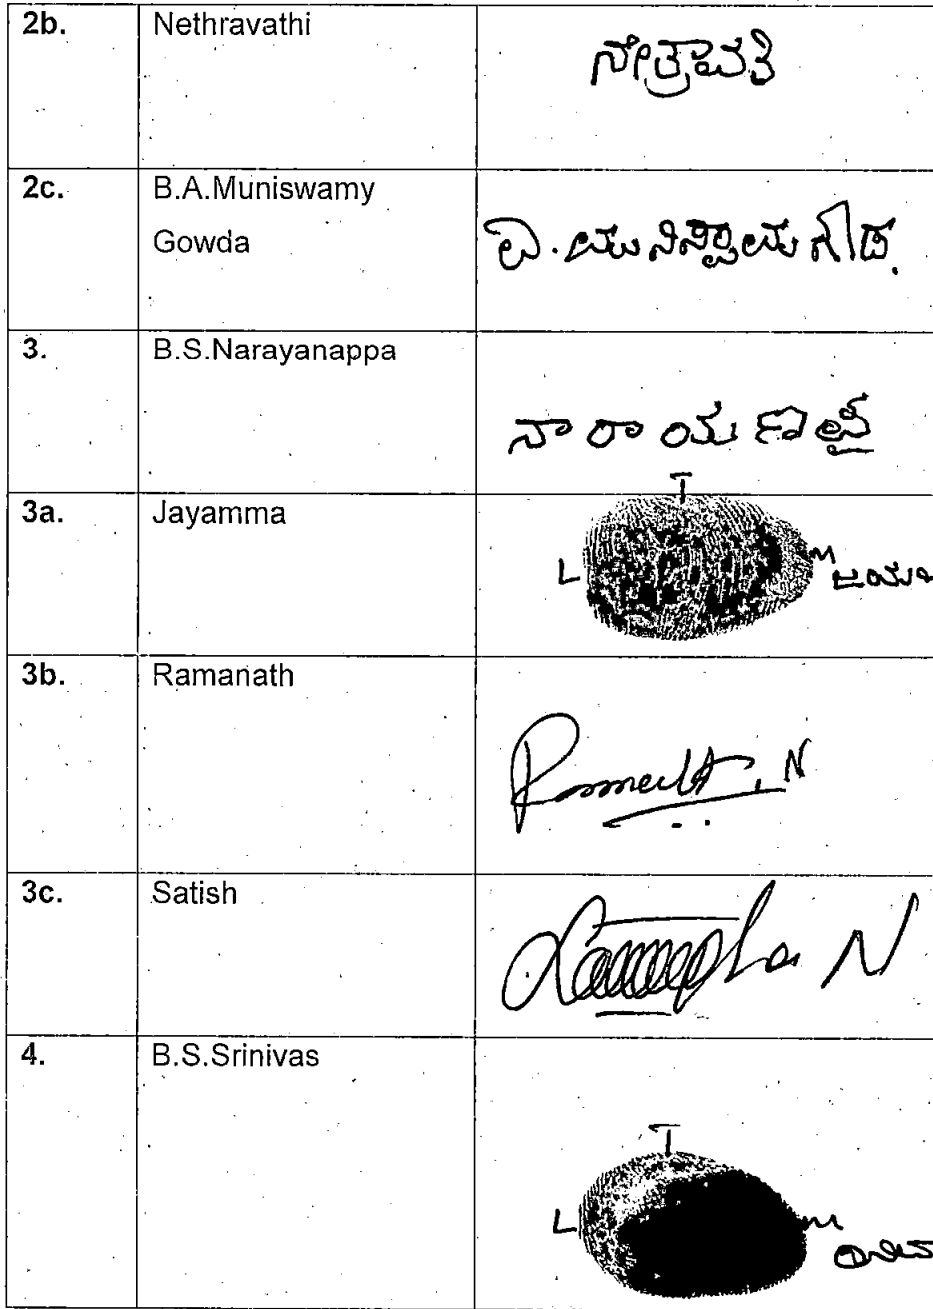 2b. Nethravathi ನೇತ್ರಾವತಿ
2c. B.A.Muniswamy
Gowda ಮುನಿಸ್ವಾಮಿ ಗೌಡ.
3. B.S.Narayanappa
ನಾರಾಯಣಪ್ಪ
T
3a. Jayamma
L M
3b. Ramanath
N
3c. Satish
N
4. B.S.Srinivas
T
L M